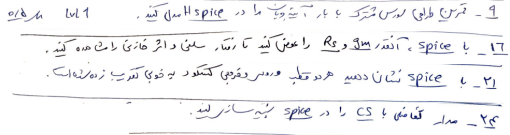 9_ تمرین طراحی سورس مشترک با بار آینه جریان را در Hspice مدل کنید.
16_ با spice، آنقدر gm و Rs را عوض کنید تا رفتار سلفی و اثر خازنی را مشاهده کنید.
21_ با spice نشان دهید هر دو قطب ورودی و خروجی کسکود به خوبی تقریب زده شده‌است.
24_ مدار تفاضلی با CS را در spice شبیه سازی کنید.